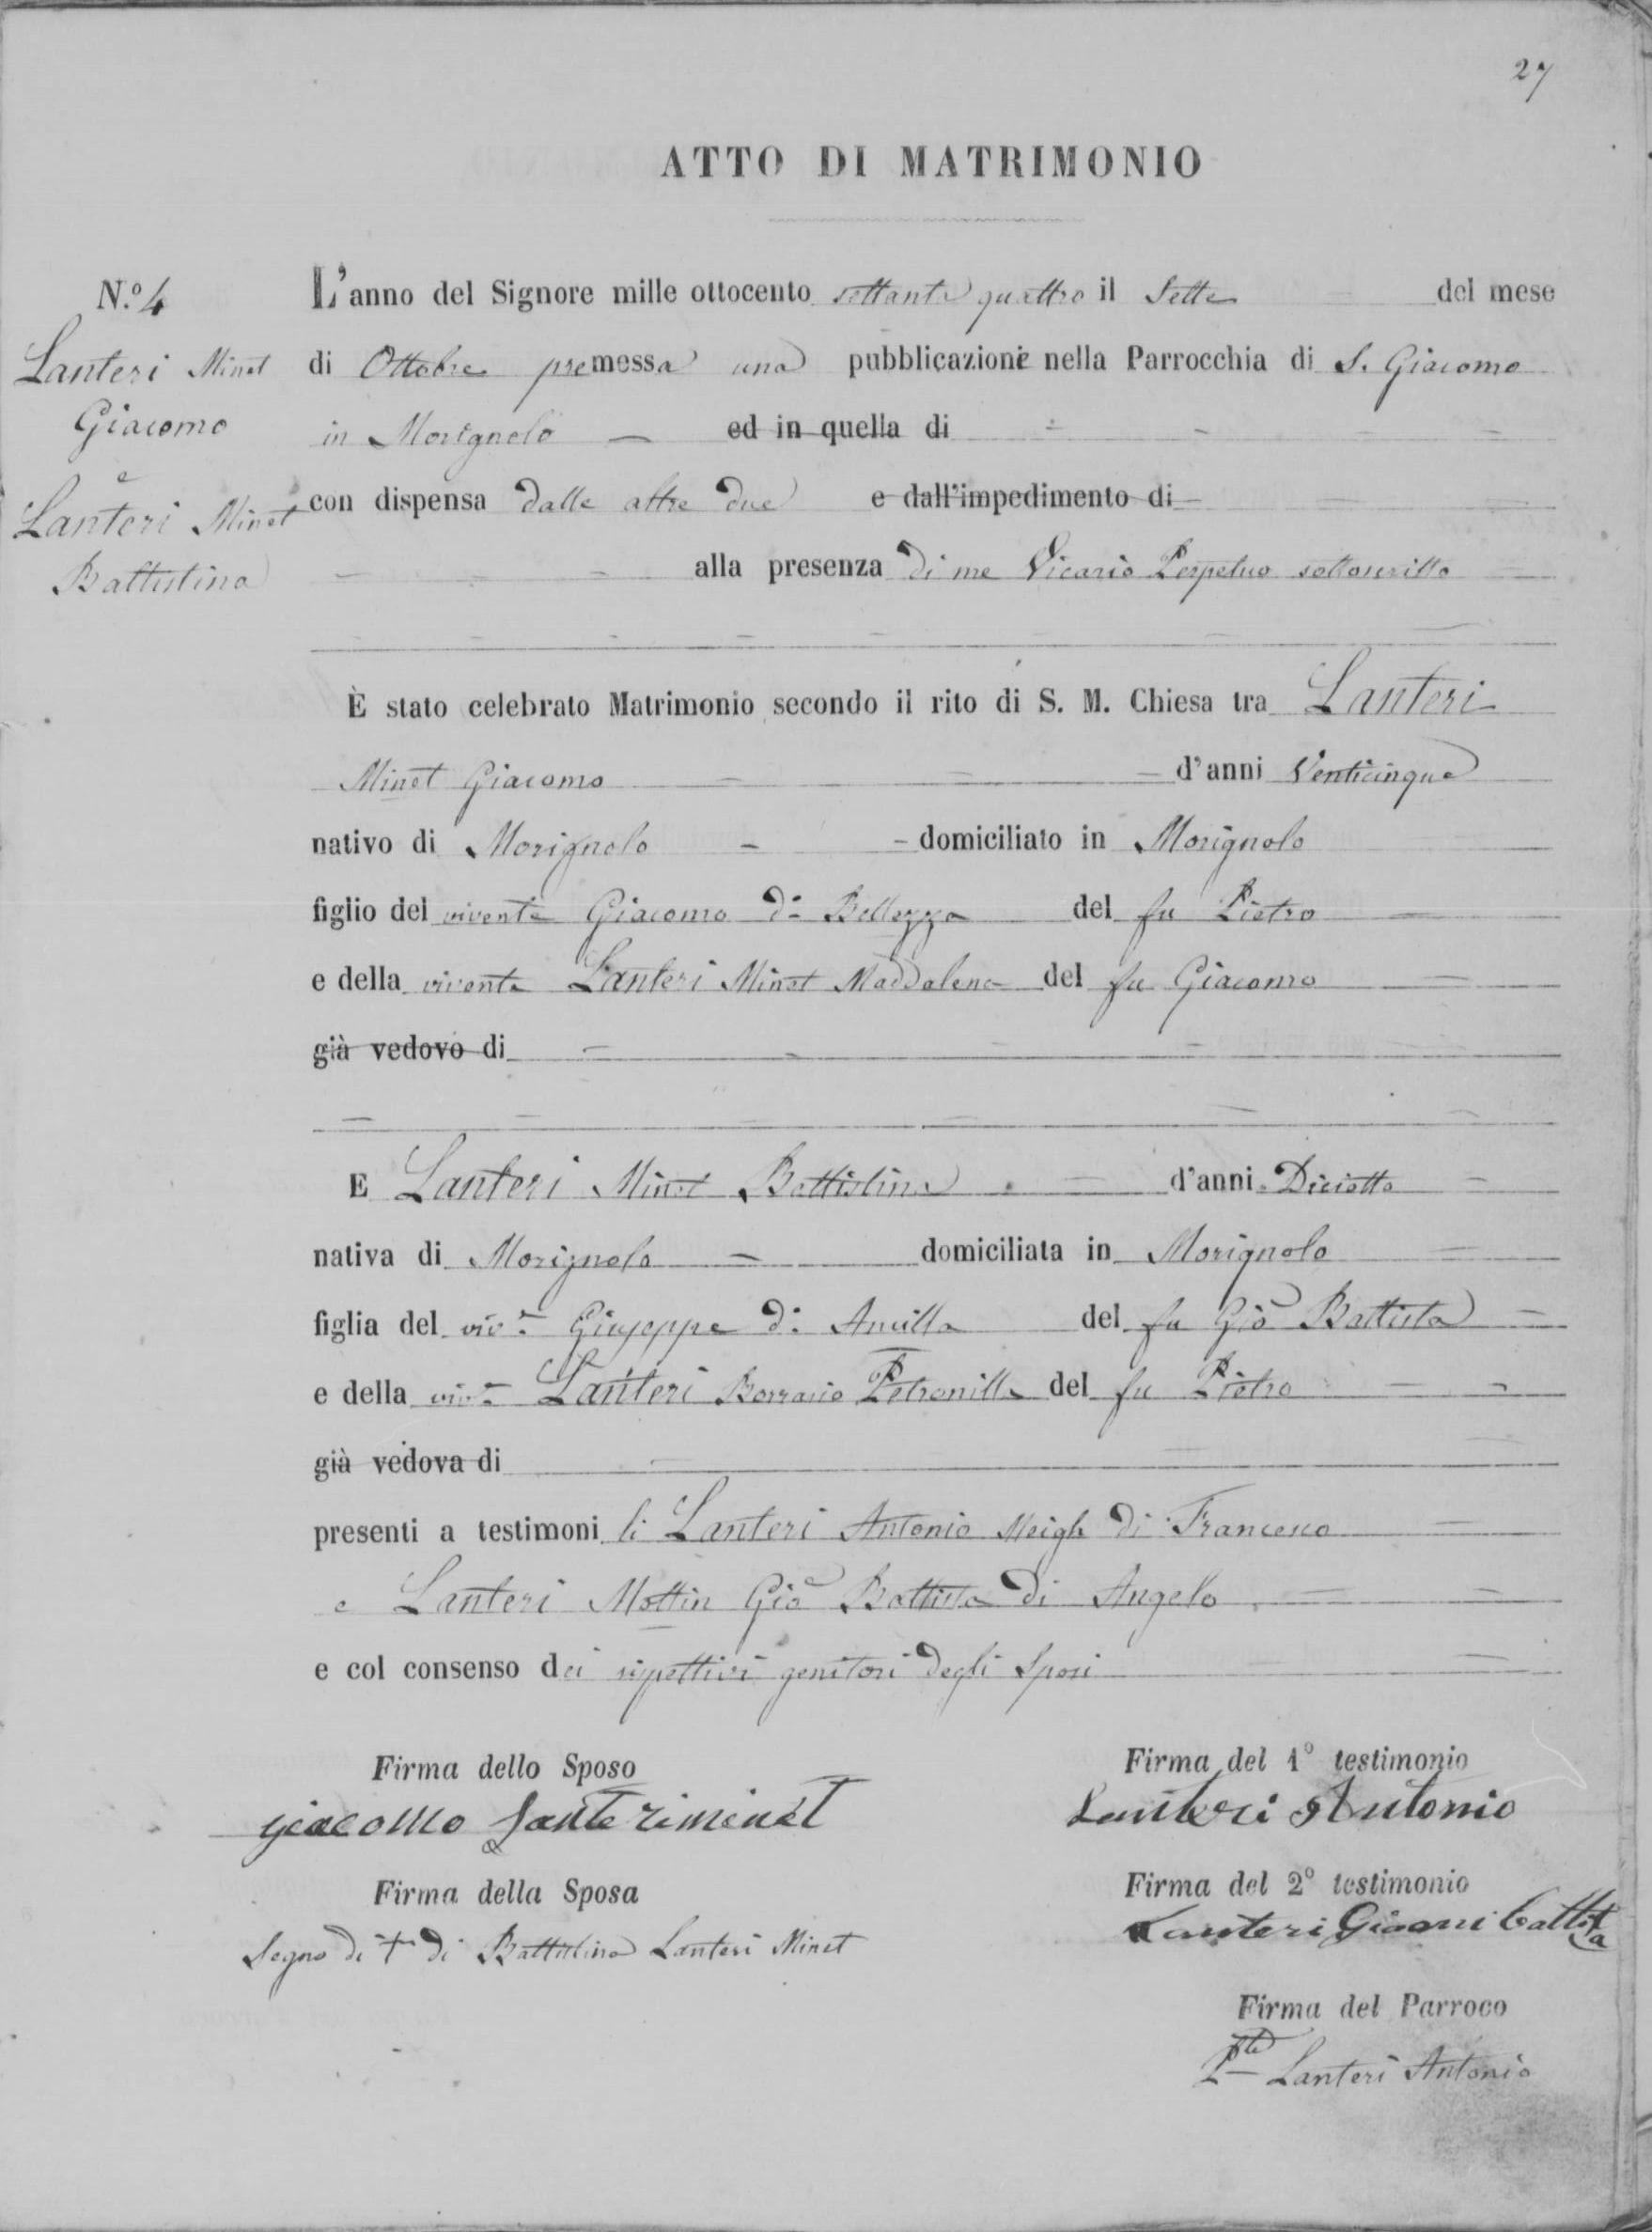 27
ATTO DI MATRIMONIO
N.º 4
Lanteri Minet
Giacomo
e
Lanteri Minet
Battistina
L'anno del Signore mille ottocento settanta quattro il Sette del mese
di Ottobre premessa una pubblicazione nella Parrocchia di S. Giacomo
in Morignolo — ed in quella di
con dispensa dalle altre due e dall'impedimento di
alla presenza di me Vicario Perpetuo sottoscritto
È stato celebrato Matrimonio secondo il rito di S. M. Chiesa tra Lanteri
Minet Giacomo d'anni Venticinque
nativo di Morignolo domiciliato in Morignolo
figlio del vivente Giacomo di Bellezza del fu Pietro
e della vivente Lanteri Minet Maddalena del fu Giacomo
già vedovo di
E Lanteri Minet Battistina d'anni Diciotto
nativa di Morignolo domiciliata in Morignolo
figlia del viv.e Giuseppe di Ancilla del fu Gio Battista
e della viv.e Lanteri Petronilla del fu Pietro
già vedova di
presenti a testimoni li Lanteri Antonio Meigh di Francesco
e Lanteri Mottin Gio Battista di Angelo
e col consenso dei rispettivi genitori degli Sposi
Firma dello Sposo
giacomo Lanteriminet
Firma della Sposa
Segno di + di Battistina Lanteri Minet
Firma del 1º testimonio
Lanteri Antonio
Firma del 2º testimonio
Lanteri Gioani Battista
Firma del Parroco
Pte Lanteri Antonio